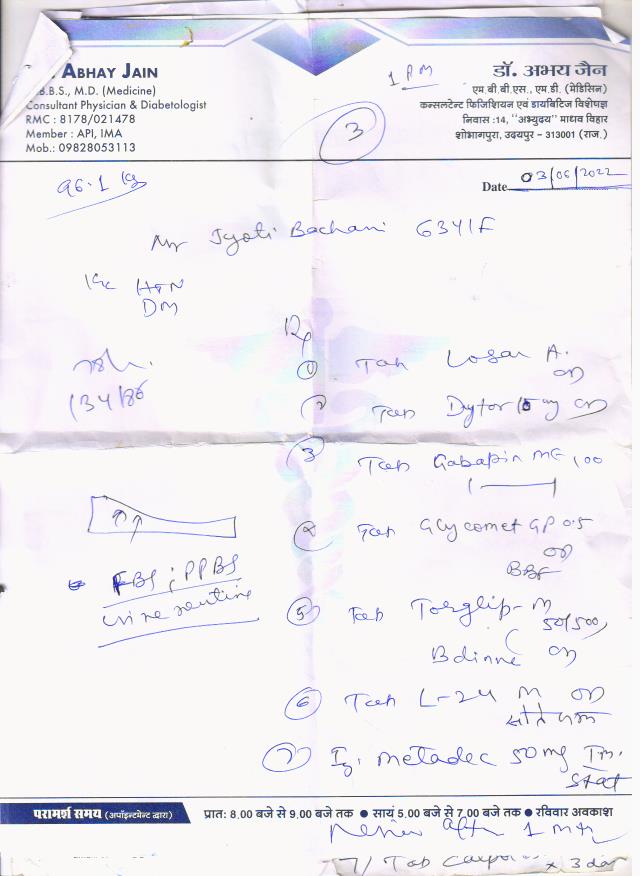 ABHAY JAIN
M.B.B.S., M.D. (Medicine)
Consultant Physician & Diabetologist
RMC : 8178/021478
Member : API, IMA
Mob.: 09828053113
1 PM
3
डॉ. अभय जैन
एम.बी.बी.एस., एम.डी. (मेडिसिन)
कन्सलटेन्ट फिजिशियन एवं डायबिटिज विशेषज्ञ
निवास :14, "अभ्युदय" माधव विहार
शोभागपुरा, उदयपुर – 313001 (राज.)
Date 03/06/2022
96.1 kg
Jyoti Bachani 63y/F
HTN
DM
134/86
Rx
1 Tab Losar A. OD
2 Tab Dytor 10 mg OD
3 Tab Gabapin ME 100
4 Tab Glycomet GP 0.5
OD
BBF
FBS ; PPBS
Urine routine
5 Tab Torglip-M
50/500
B dinner OD
6 Tab L-24 M OD
7 Inj. metadec 50 mg Im.
Stat
परामर्श समय (अपॉइन्टमेन्ट द्वारा) प्रातः 8.00 बजे से 9.00 बजे तक ● सायं 5.00 बजे से 7.00 बजे तक ● रविवार अवकाश
Review after 1 mth
7/ Tab x 3 day